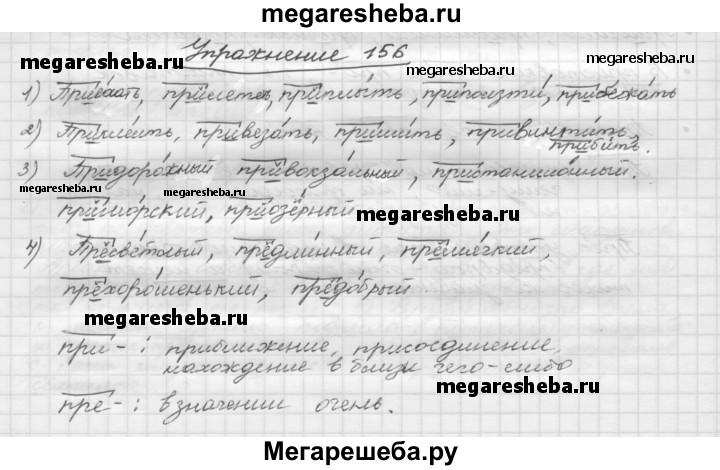 megaresheba.ru
Упражнение 156
megaresheba.ru
megaresheba.ru
megaresheba.ru
1) Приехать, прилететь, приплыть, приползти, прибежать
2) Приклеить, привезать, пришить, привинтить,
прибить.
3) Придорожный привокзальный, пристанционный.
megaresheba.ru
megaresheba.ru
приморский, приозёрный
megaresheba.ru
4) Пресветлый, предлинный, премягкий,
прехорошенький, предобрый.
megaresheba.ru
при- : приближение, присоединение,
нахождение в близи чего-либо
megaresheba.ru
пре- : в значении очень.
Мегарешеба.ру